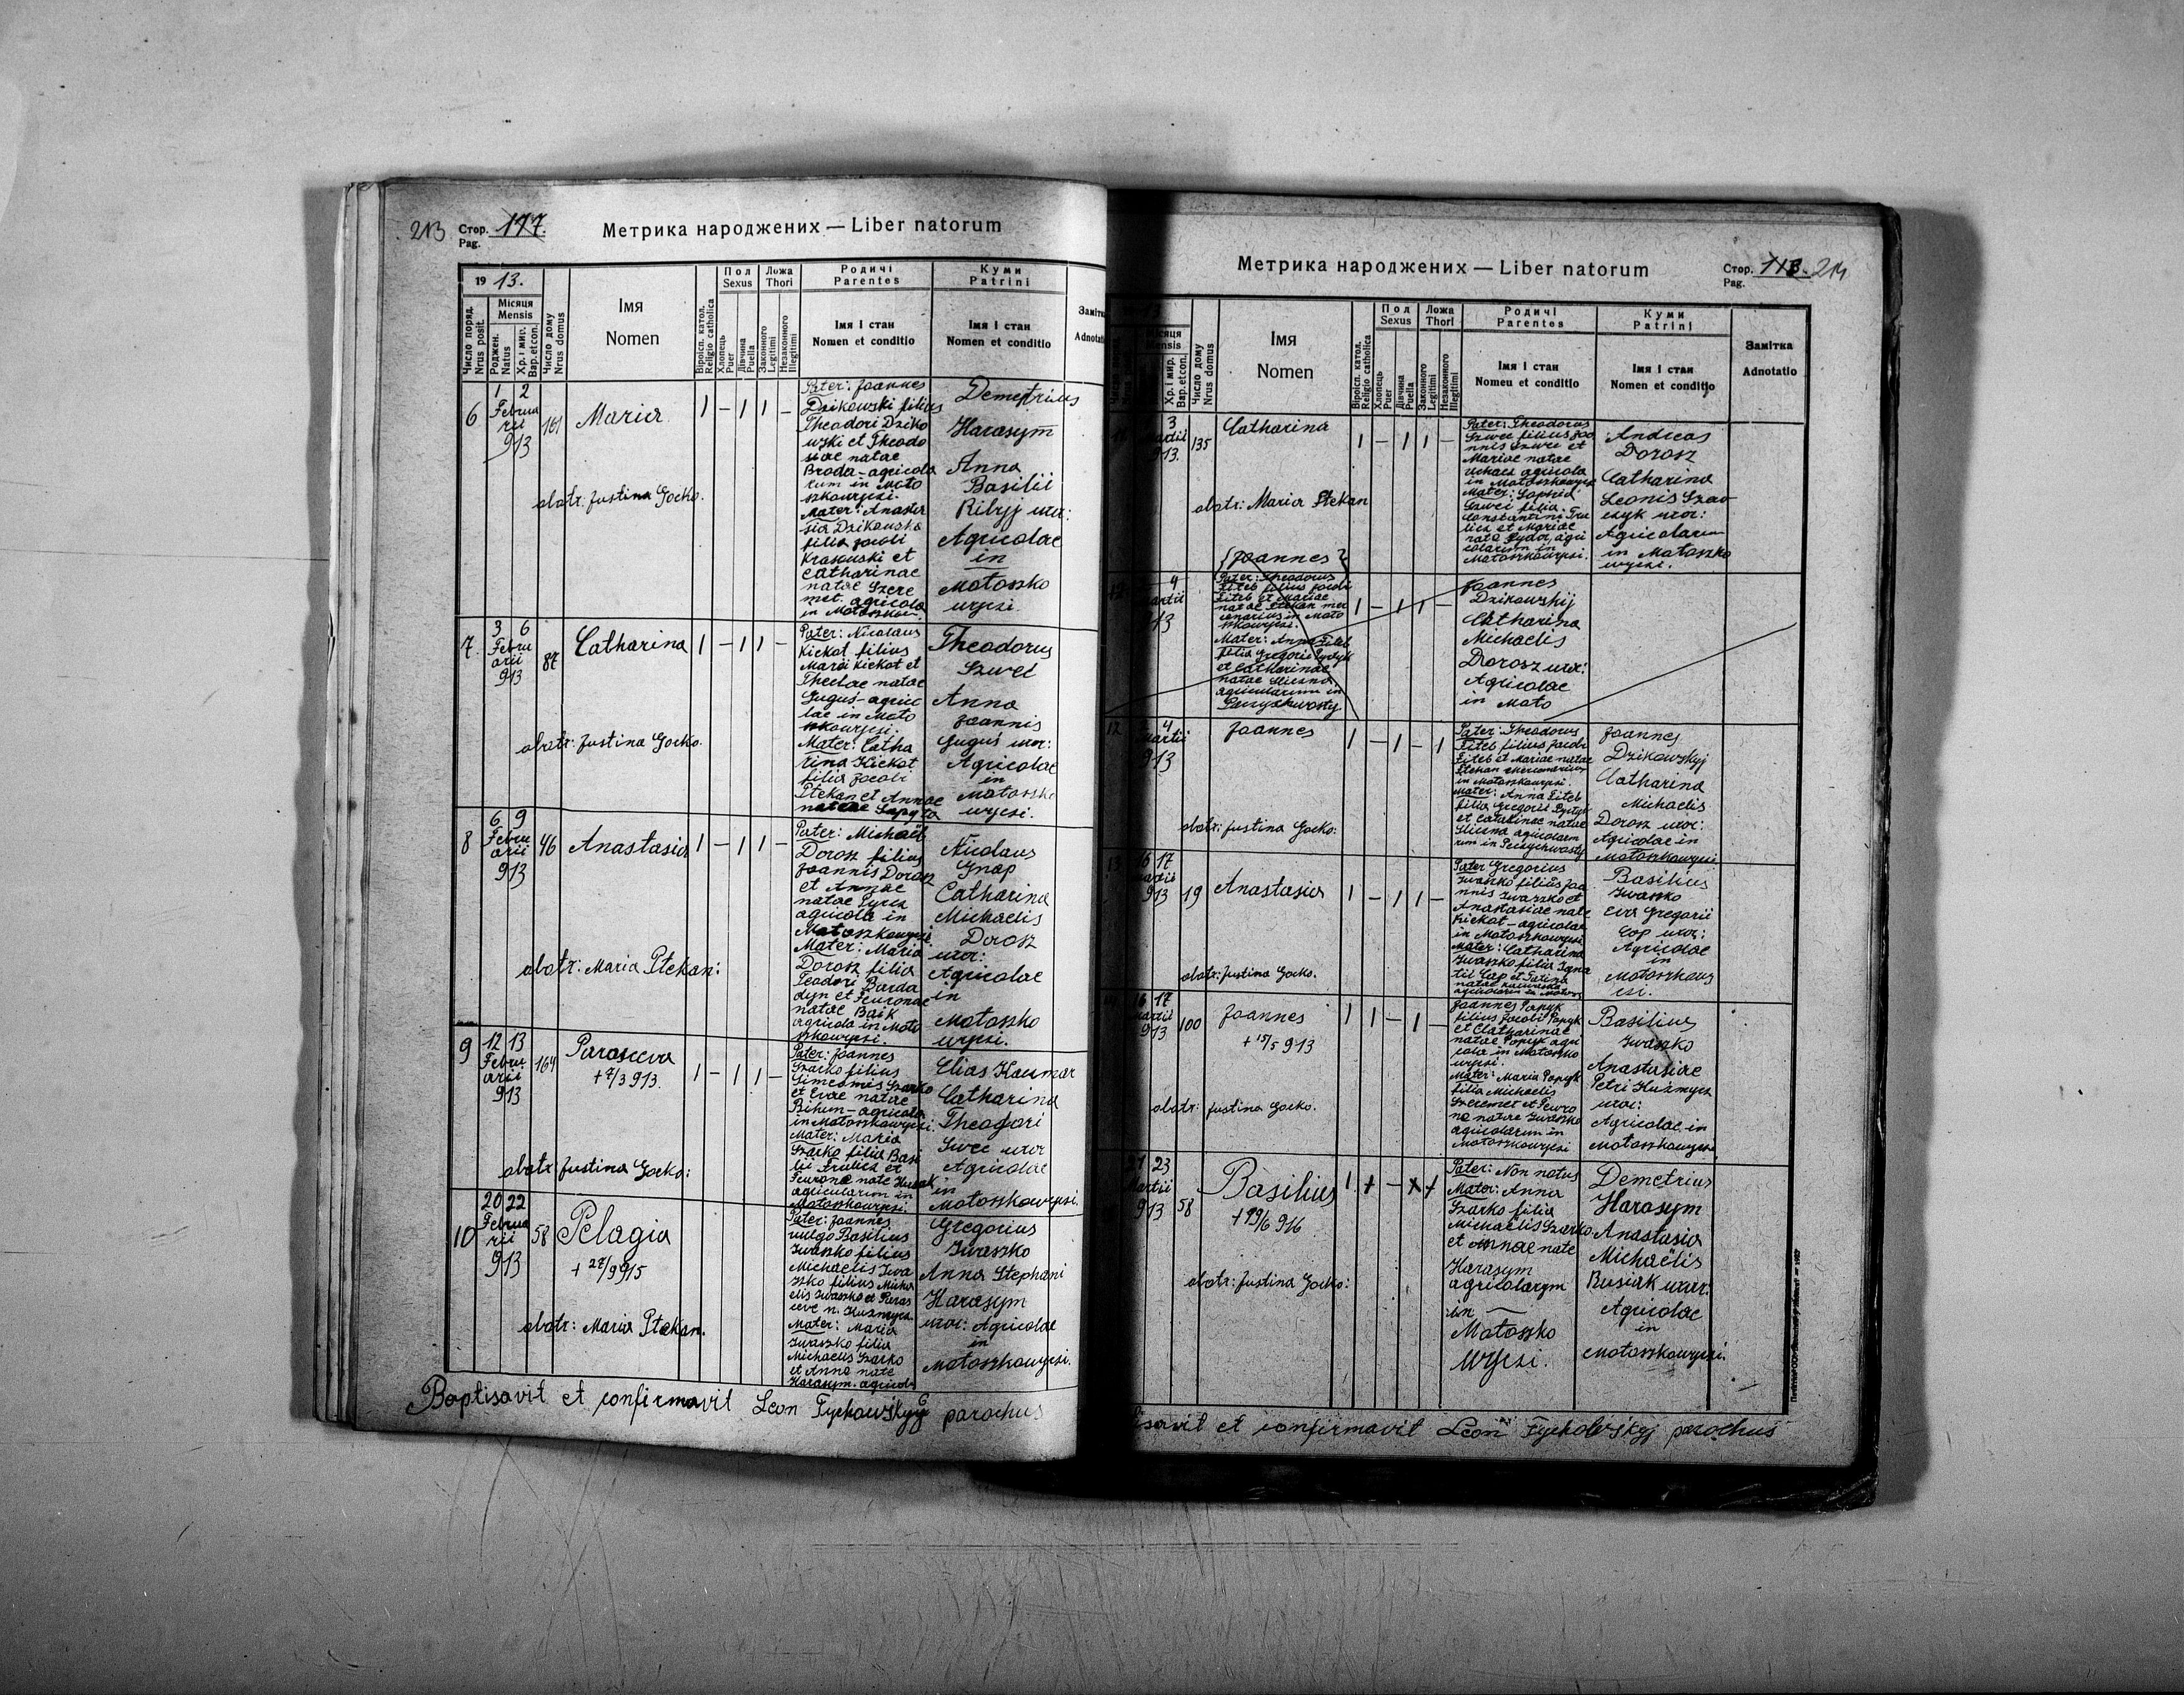 213 Стор. 177.
Pag.
Метрика народжених — Liber natorum
19 13.
Число поряд.
Nrus posit.
Місяця
Mensis
Роджен.
Natus
Хр. і мир.
Bap. et con.
Число дому
Nrus domus
Імя
Nomen
Віроісп. катол.
Religio catholica
Пол
Sexus
Хлопець
Puer
Дівчина
Puella
Ложа
Thori
Законного
Legitimi
Незаконного
Illegitimi
Родичі
Parentes
Імя і стан
Nomen et conditio
Куми
Patrini
Імя і стан
Nomen et conditio
Замітка
Adnotatio
6
1 2
Februa
rii
913
161
Maria
obstr: Justina Gocko.
1 – 1 1 –
Pater: Joannes
Dzikowski filius
Theodori Dziko
wski et Theodo
siae natae
Broda – agricola
rum in Mato
szkowyesi.
Mater: Anasta
sia Dzikowska
filia Jacobi
Krasowski et
Catharinae
natae Szere
met. agricola
in Matoszkow.
Demetrius
Harasym
Anna
Basilii
Ribyj uxor:
Agricolae
in
Matoszko
wyesi.
7.
3 6
Febru
arii
913
87
Catharina
obstr: Justina Gocko.
1 – 1 1 –
Pater: Nicolaus
Kickot filius
Mardi Kickot et
Theclae natae
Guguś – agrico
lae in Mato
szkowyesi.
Mater: Catha
rina Kickot
filia Jacobi
Ptekan et Annae
natae Sapyta
Theodorus
Szwec
Anna
Joannis
Guguś uxor:
Agricolae
in
Matoszko
wyesi.
8
6 9
Febru
arii
913
46
Anastasia
obstr: Maria Ptekan:
1 – 1 1 –
Pater: Michaël
Dorosz filius
Joannis Dorosz
et Annae
natae Pyrcz
agricola in
Matoszkowyesi.
Mater: Maria
Dorosz filia
Teodori Barda
dyn et Feuronae
natae Baik
agricola in Mato
szkowyesi.
Nicolaus
Gnap
Catharina
Michaelis
Dorosz
uxor:
Agricolae
in
Matoszko
wyesi.
9
12 13
Febru
arii
913
164
Parasceva
+ 7/3 913.
obstr. Justina Gocko:
1 – 1 1 –
Pater: Joannes
Szarko filius
Simeonis Szarko
et Evae natae
Bihun – agricola
in Matoszkowyesi.
Mater: Maria
Szarko filia Basi
lii Trulicz et
Feuronae nate
agricolarum in
Matoszkowyesi.
Elias Kaczmar
Catharina
Theodori
Szwec uxor
Agricolae
in
Matoszkowyesi.
10
20 22
Februa
rii
913
58
Pelagia
+ 27/9 915
obstr: Maria Ptekan.
Pater: Joannes
vulgo Basilius
Iwaszko filius
Michaelis Iwa
szko filius Micha
elis Iwaszko et Paras
ceve n. Kuźmycz.
Mater: Maria
Iwaszko filia
Michaelis Szarko
et Anna nate
Harasym. agricola
Gregorius
Iwaszko
Anna Stephani
Harasym
uxor: Agricolae
in
Matoszkowyesi.
Baptisavit et confirmavit Leon Tychowskyj parochus
Метрика народжених — Liber natorum
Стор. 118. 214
Pag.
Місяця
Mensis
Хр. і мир.
Bap. et con.
Число дому
Nrus domus
Імя
Nomen
Віроісп. катол.
Religio catholica
Пол
Sexus
Хлопець
Puer
Дівчина
Puella
Ложа
Thori
Законного
Legitimi
Незаконного
Illegitimi
Родичі
Parentes
Імя і стан
Nomeu et conditio
Куми
Patrini
Імя і стан
Nomen et conditio
Замітка
Adnotatio
3
Martii
913.
135
Catharina
obstr: Maria Ptekan
1 – 1 1 –
Pater: Theodorus
Szwec filius Joa
nnis Szwec et
Mariae natae
agricola
in Matoszkowyes
Mater: Sophia
Szwec filia
Constantini Tru
licz et Mariae
nata Sydor, agri
colarum in
Matoszkowyesi.
Andreas
Dorosz
Catharina
Leonis Szew
czyk uxor:
Agricolarum
in Matoszko
wyesi.
{Joannes}
4
Martii
913
Pater: Theodorus
Titeb filius Jacobi
Titeb et Mariae
natae Ptekan mer
cenarius in Mato
szkowyesi.
Mater: Anna Titeb
filia Gregorii Pyrtyk
et Catharinae
natae Sliczna
agricolarum in
Peczychwosty
1 – 1 1 –
Joannes
Dzikowskij
Catharina
Michaelis
Dorosz uxor:
Agricolae
in Mato
12
2 4
Martii
913
Joannes
obstr: Justina Gocko:
1 – 1 – 1
Pater: Theodorus
Titeb filius Jacobi
Titeb et Mariae natae
Ptekan mercenarius
in Matoszkowyesi
Mater: Anna Titeb
filia Gregorii Pyrtyk
et Catarinae natae
Sliczna agricolarum
in Peczychwosty
Joannes
Dzikowskyj
Catharina
Michaelis
Dorosz uxor:
Agricolae in
Matoszkowyesi
13
16 17
Martii
913
19
Anastasia
obstr: Justina Gocko.
1 – 1 1 –
Pater Gregorius
Iwaszko filius Joa
nnis Iwaszko et
Anastasiae nate
Kickot – agricolae
in Matoszkowyesi
Mater: Catharina
Iwaszko filia Igna
tii Cap et Tatiana
Basilius
Iwaszko
Eva Gregorii
Cap uxor:
Agricolae
in
Matoszkowy
esi.
16 17
Martii
913
100
Joannes
+ 15/5 913
obstr: Justina Gocko.
1 1 – 1 –
Joannes Papyk
filius Jacobi Papyk
et Catharinae
natae Papyk agri
cola in Matoszko
wyesi.
Mater: Maria Papyk
filia Michaelis
Szeremet et Feuro
na natae Iwaszko
agricolarum in
Matoszkowyesi
Basilius
Iwaszko
Anastasiae
Petri Kuźmycz
uxor:
Agricolae in
Matoszkowyesi.
21 23
Martii
913
58
Basilius
+ 19/6 916
obstr: Justina Gocko:
Pater: Non natus
Mater: Anna
Szarko filia
Michaëlis Szarko
et Annae nate
Harasym
agricolarym
in
Matoszko
wyesi.
Demetrius
Harasym
Anastasia
Michaëlis
Busiak uxor:
Agricolae
in
Matoszkowyesi.
isavit et confirmavit Leon Tycholvskyj parochus